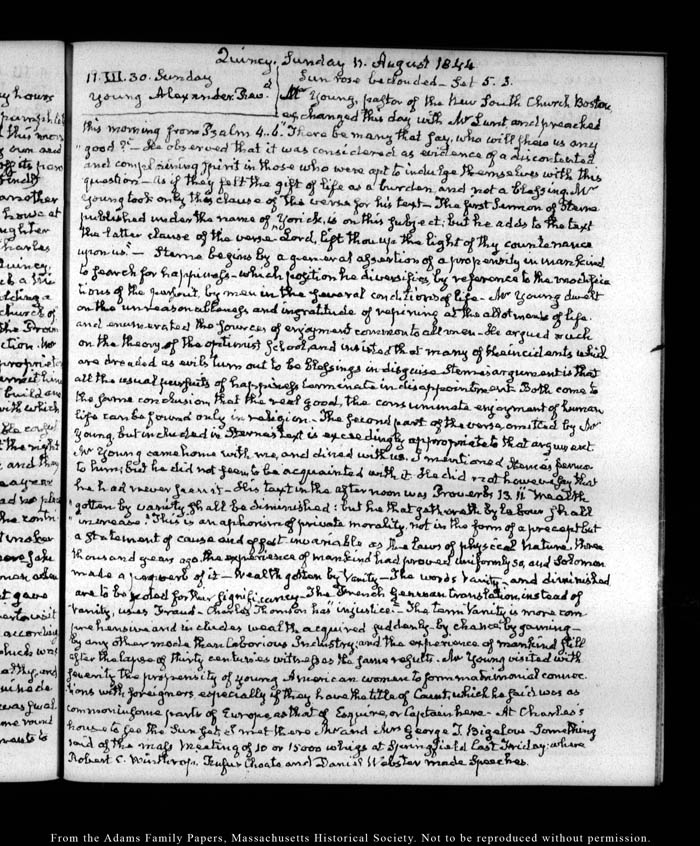 Quincy. Sunday 11. August 1844
11. III. 30. Sunday
Young Alexander. Revd
Sun rose beclouded - Set 5. 3.
Mr Young, pastor of the New South Church Boston,
exchanged this day with Mr Lunt and preached
this morning from Psalm 4. 6. "There be many that say, who will shew us any
"good?" - He observed that it was considered as evidence of a discontented
and complaining spirit in those who were apt to indulge themselves with this
question - as if they felt the gift of life as a burden and not a blessing. Mr
Young took only this clause of the verse for his text - The first Sermon of Sterne
published under the name of Yorick, is on this subject; but he adds to the text
the latter clause of the verse "Lord, lift thou up the light of thy countenance
upon us." - Sterne begins by a general assertion of a propensity in mankind
to search for happiness - which position he diversifies, by reference to the modifica
tions of the pursuit, by men in the several conditions of life - Mr Young dwelt
on the unreasonableness and ingratitude of repining at the allotments of life.
and enumerated the sources of enjoyment common to all men - He argued much
on the theory of the optimist School and insisted that many of the incidents which
are dreaded as evils turn out to be blessings in disguise. Sterne's argument is that
all the usual pursuits of happiness terminate in disappointment. Both come to
the same conclusion that the real good, the consummate enjoyment of human
life can be found only in religion - The second part of the verse, omitted by Mr
Young, but included in Sterne's text is exceedingly appropriate to that argument.
Mr Young came home with me, and dined with us. I mentioned Sterne's Sermo
to him; but he did not seem to be acquainted with it. He did not however say that
he had never seen it - His text in the afternoon was Proverbs 13. 11 "Wealth
"gotten by vanity shall be diminished: but he that gathereth by labour shall
"increase." This is an aphorism of private morality, not in the form of a precept but
a statement of cause and effect invariable as the laws of physical Nature. Three
thousand years ago, the experience of mankind had proved uniformly so, and Solomon
made a proverb of it - Wealth gotten by Vanity - The words Vanity, and diminished
are to be noted for their significancy - The French German translation, instead of
Vanity, uses Fraud - Charles Thomson has "injustice" - The term Vanity is more com
prehensive and includes wealth acquired suddenly - by chance, by gaming -
by any other mode than laborious Industry; and the experience of mankind still
after the lapse of thirty centuries witnesses the same result. Mr Young visited with
severity the propensity of young American women to form matrimonial connec
tions with foreigners especially if they have the title of Count, which he said was as
common in some parts of Europe, as that of Esquire, or Captain here - At Charles's
house to see the Sun set, I met there Mr and Mrs George T. Bigelow - Something
said of the mass Meeting of 10 or 15000 whigs at Springfield last Friday, where
Robert C. Winthrop, Rufus Choate and Daniel Webster made Speeches.
From the Adams Family Papers, Massachusetts Historical Society. Not to be reproduced without permission.